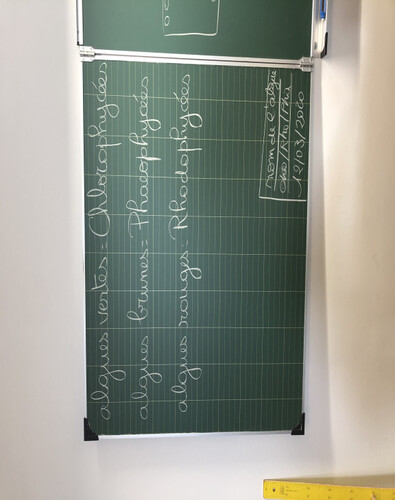 algues vertes = Chlorophycées
algues brunes = Phaeophycées
algues rouges = Rhodophycées
nom de l'algue
Chlo/Rho/Phé
12/03/2020